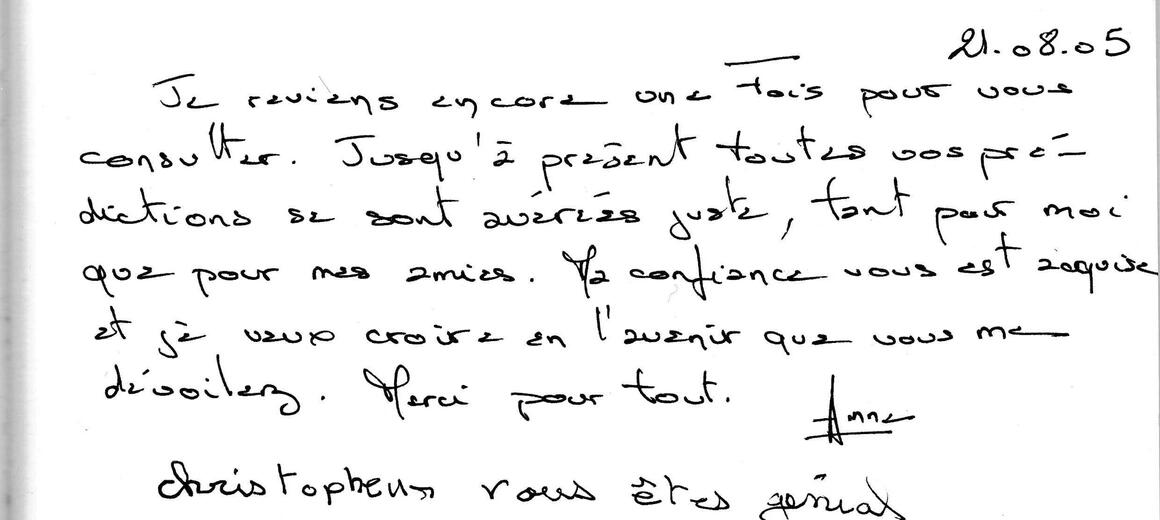 21.08.05
Je reviens encore une fois pour vous
consulter. Jusqu'à présent toutes vos pré-
dictions se sont avérées juste, tant pour moi
que pour mes amies. Ma confiance vous est acquise
et je veux croire en l'avenir que vous me
dévoilerz. Merci pour tout.
Anne
vous êtes génial